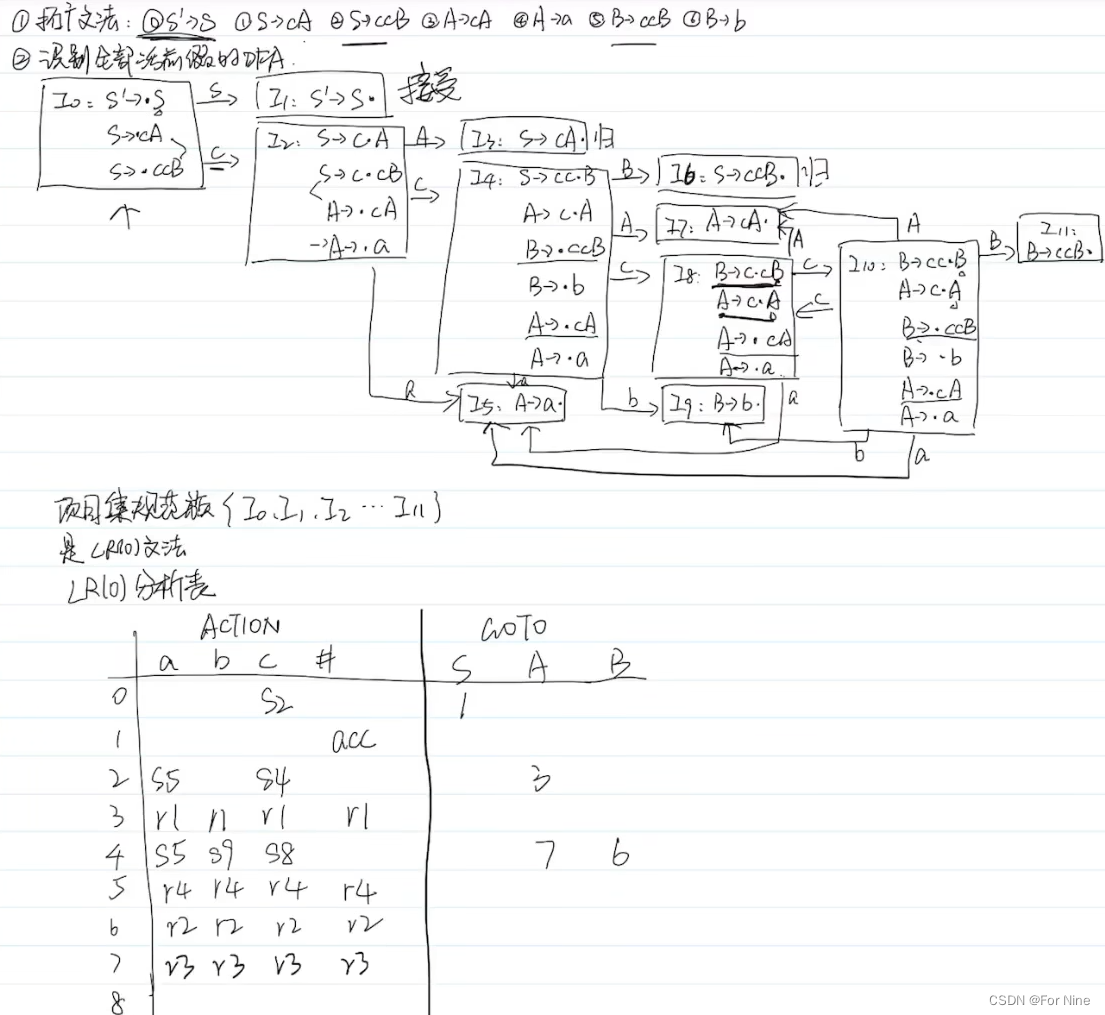 ① 拓广文法: ⓪S'→S ①S→cA ②S→ccB ③A→cA ④A→a ⑤B→ccB ⑥B→b
② 识别全部活前缀的DFA.
I0: S'→·S
S→·cA
S→·ccB
S
c
I1: S'→S· 接受
I2: S→c·A
S→c·cB
A→·cA
→A→·a
A
c
a
I3: S→cA· 归
I4: S→cc·B
A→c·A
B→·ccB
B→·b
A→·cA
A→·a
B
A
c
a
b
I5: A→a·
I6: S→ccB· 归
I7: A→cA·
A
I8: B→c·cB
A→c·A
A→·cA
A→·a
c
c
a
I9: B→b·
I10: B→cc·B
A→c·A
B→·ccB
B→·b
A→·cA
A→·a
A
B
b
a
I11:
B→ccB·
项目集规范族{I0、I1、I2…I11}
是LR(0)文法
LR(0)分析表
ACTION GOTO
a b c # S A B
0 S2 1
1 acc
2 S5 S4 3
3 r1 r1 r1 r1
4 S5 S9 S8 7 6
5 r4 r4 r4 r4
6 r2 r2 r2 r2
7 r3 r3 r3 r3
8
CSDN @For Nine